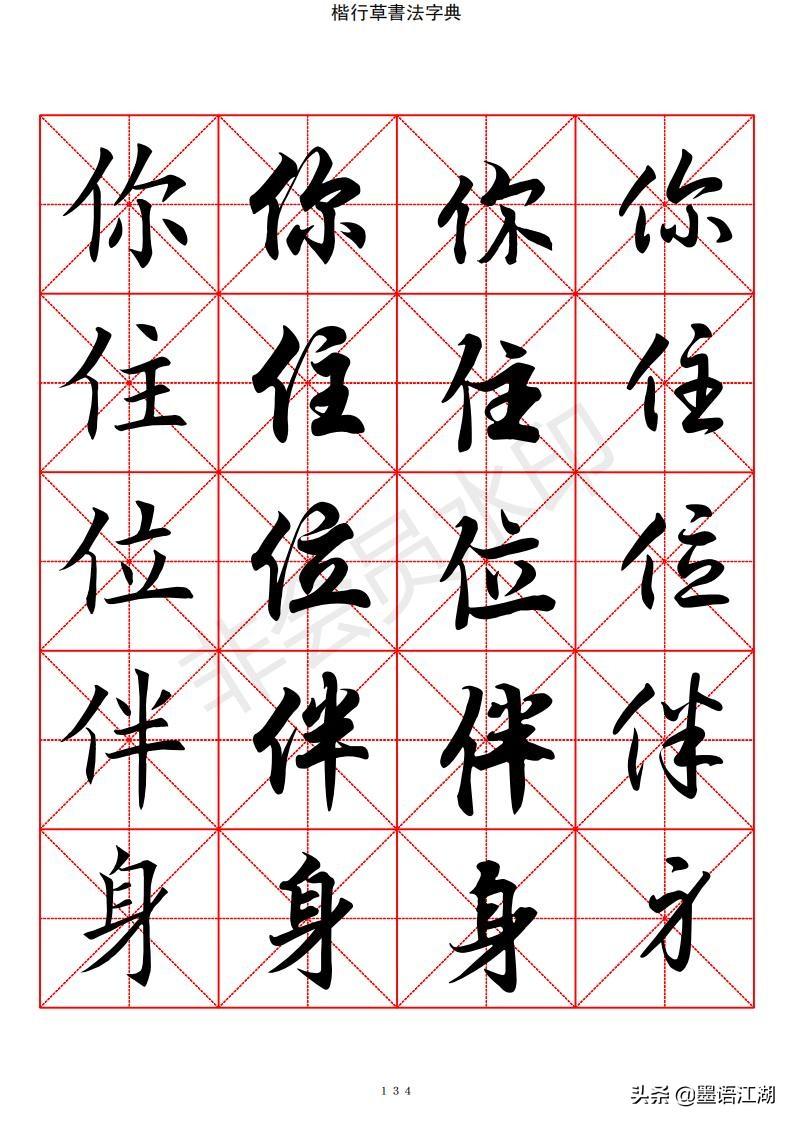 楷行草書法字典
你你你你
住住住住
位位位位
伴伴伴伴
身身身身
非会员水印
134
头条 @墨语江湖